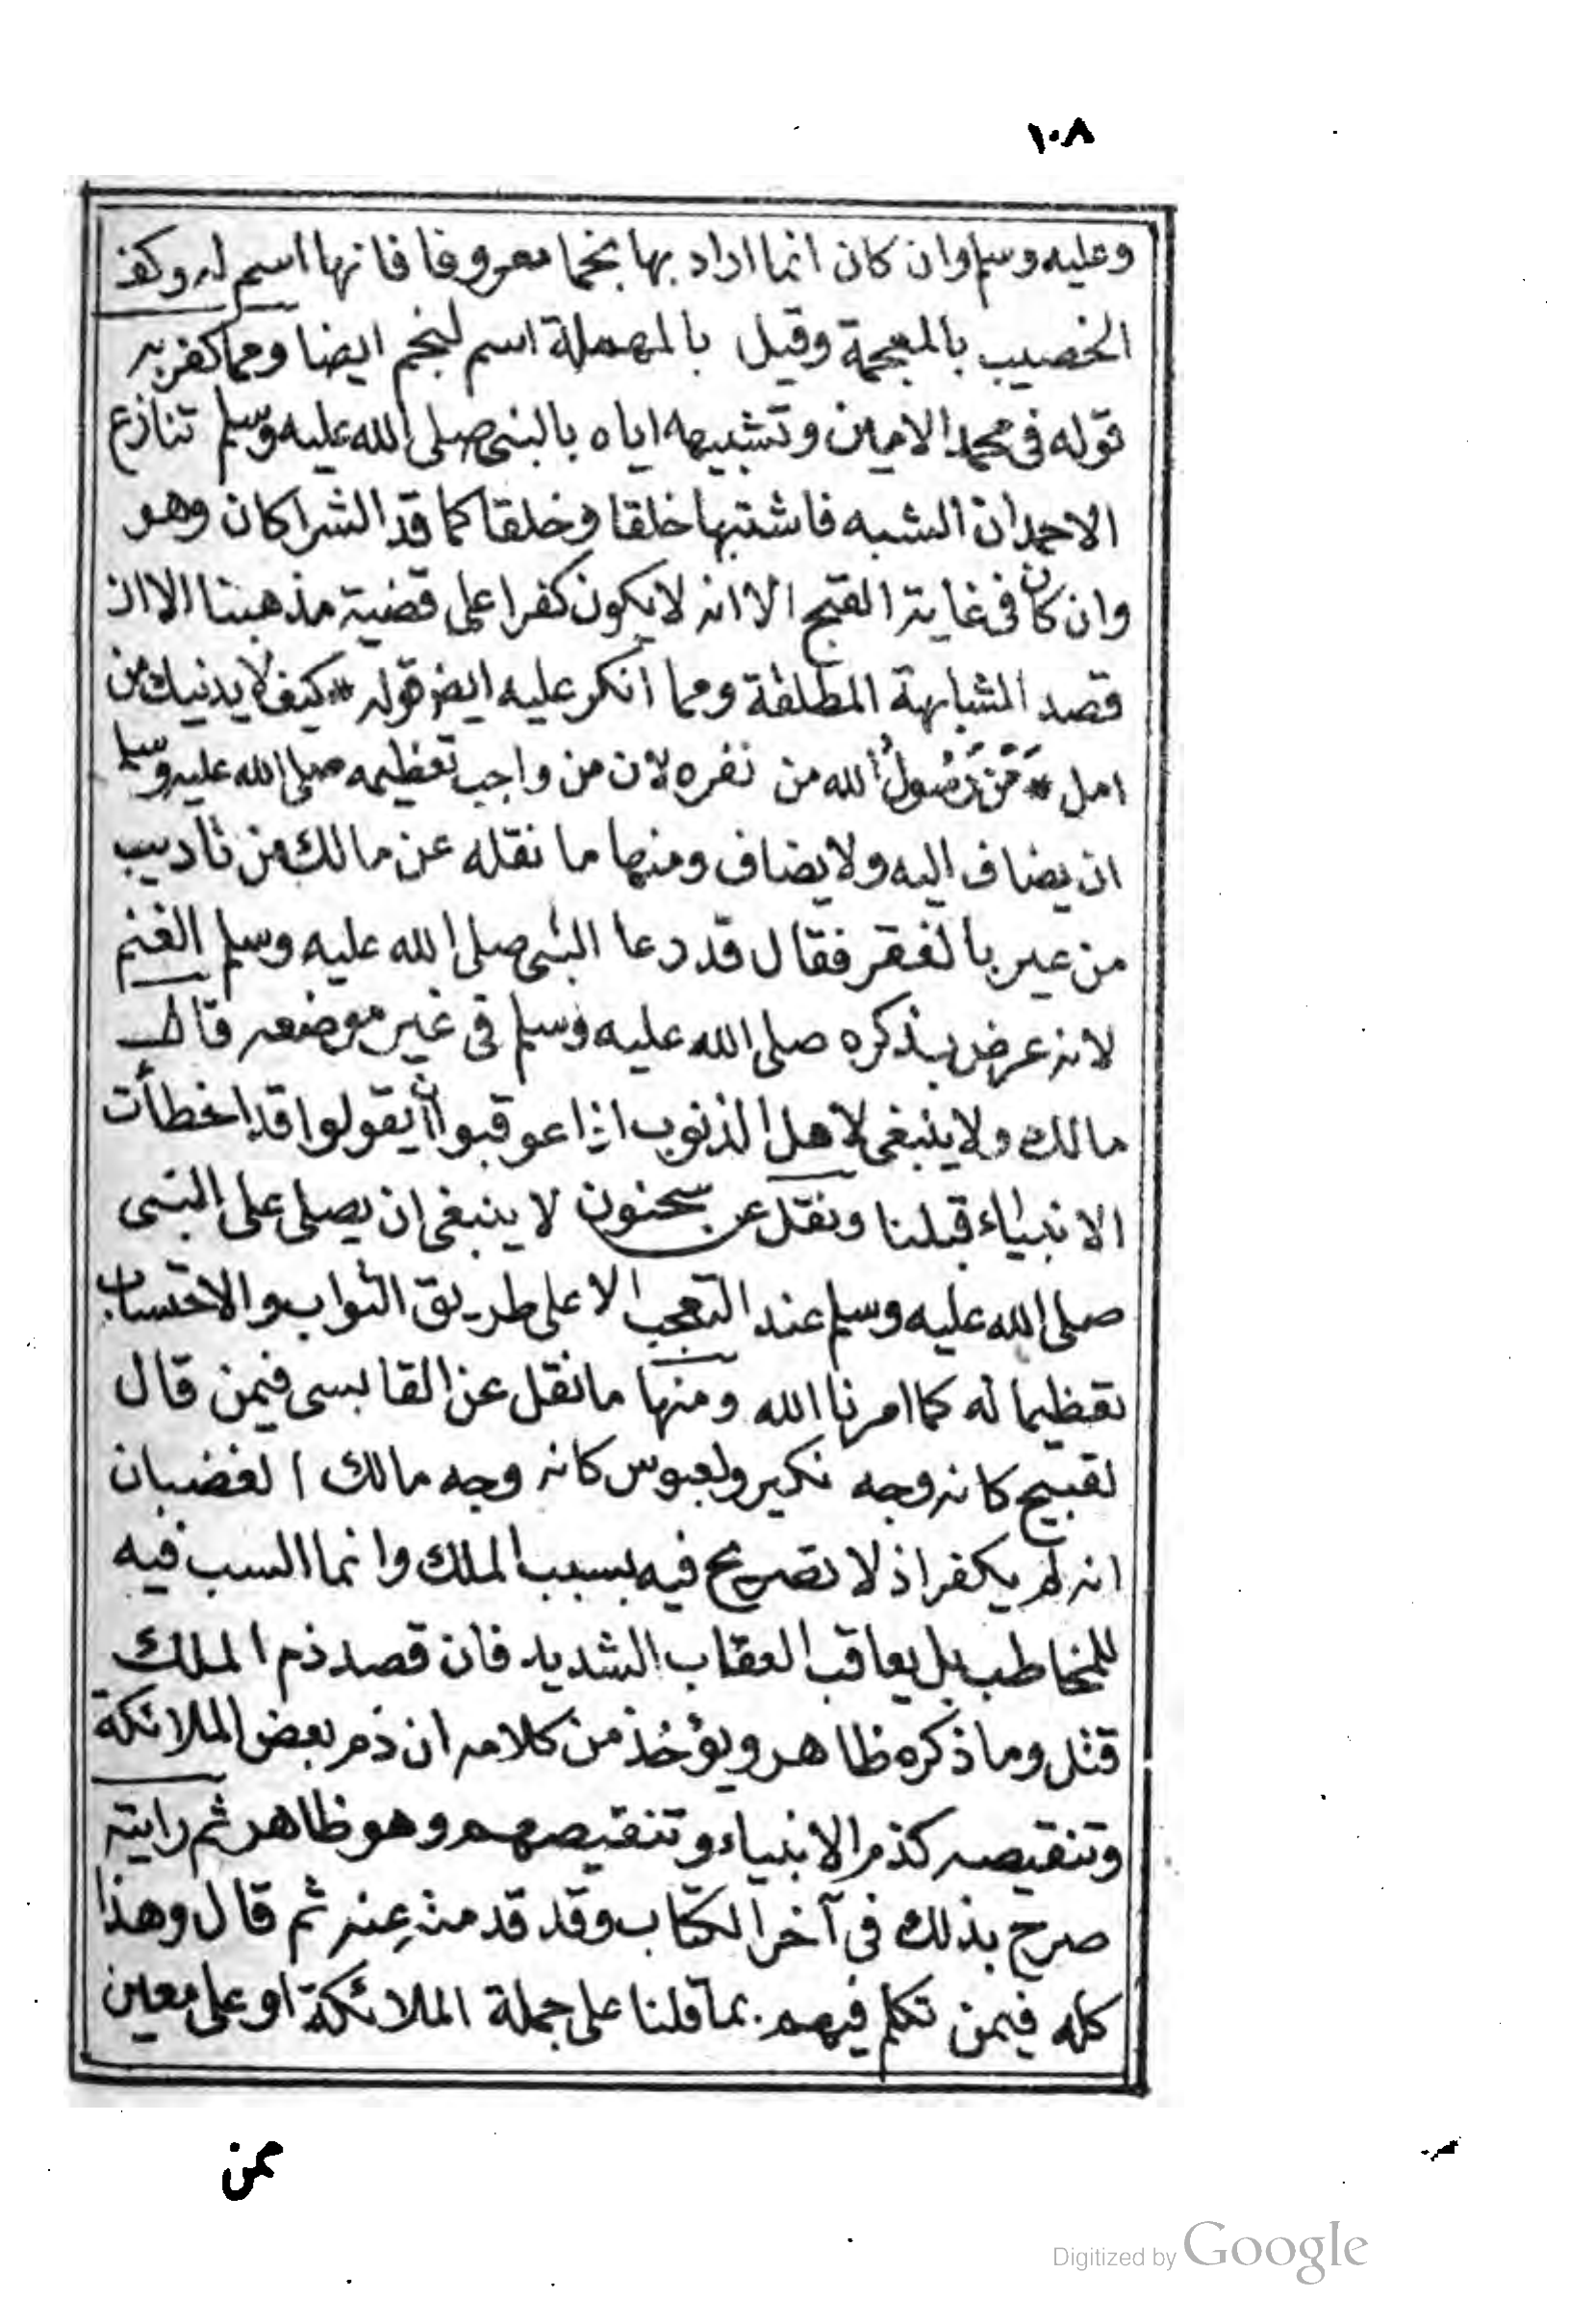 ١٠٨
وعليه وسلم وان كان انما اراد بها نجما معروفا فانها اسم له وكف
الخصيب بالمعجمة وقيل بالمهملة اسم لنجم ايضا ومما كفر به
قوله فى محمد الامين وتشبيهه اياه بالنبى صلى الله عليه وسلم تنازع
الاحمدان الشبه فاشتبها خلقا وخلقا كما قد الشراكان وهو
وان كان فى غاية القبح الا انه لا يكون كفرا على قضية مذهبنا الا ان
قصد المشابهة المطلقة ومما انكر عليه ايض قوله * كيف لا يدنيك من
امل * مَنْ رَسُولُ الله من نفره لان من واجب تعظيمه صلى الله عليه وسلم
ان يضاف اليه ولا يضاف ومنها ما نقله عن مالك من تاديب
من عير بالفقر فقال قد رعا النبى صلى الله عليه وسلم الغنم
لانه عرض بذكره صلى الله عليه وسلم فى غير موضعه قال
مالك ولا ينبغى لاهل الذنوب اذا عوقبوا ان يقولوا قد اخطأت
الانبياء قبلنا ونقل عن سحنون لا ينبغى ان يصلى على النبى
صلى الله عليه وسلم عند التعجب الا على طريق الثواب والاحتساب
تعظيما له كما امرنا الله ومنها ما نقل عن القابسى فيمن قال
لقبيح كانه وجه نكير ولعبوس كانه وجه مالك الغضبان
انه لم يكفر اذ لا تصريح فيه بسبب الملك وانما السب فيه
للمخاطب بل يعاقب العقاب الشديد فان قصد ذم الملك
قتل وما ذكره ظاهر ويؤخذ من كلامه ان ذم بعض الملائكة
وتنقيصه كذم الانبياء وتنقيصهم وهو ظاهر ثم رايته
صرح بذلك فى آخر الكتاب وقد قدمته عنه ثم قال وهذا
كله فيمن تكلم فيهم بما قلنا على جملة الملائكة او على معين
ممن
Digitized by Google